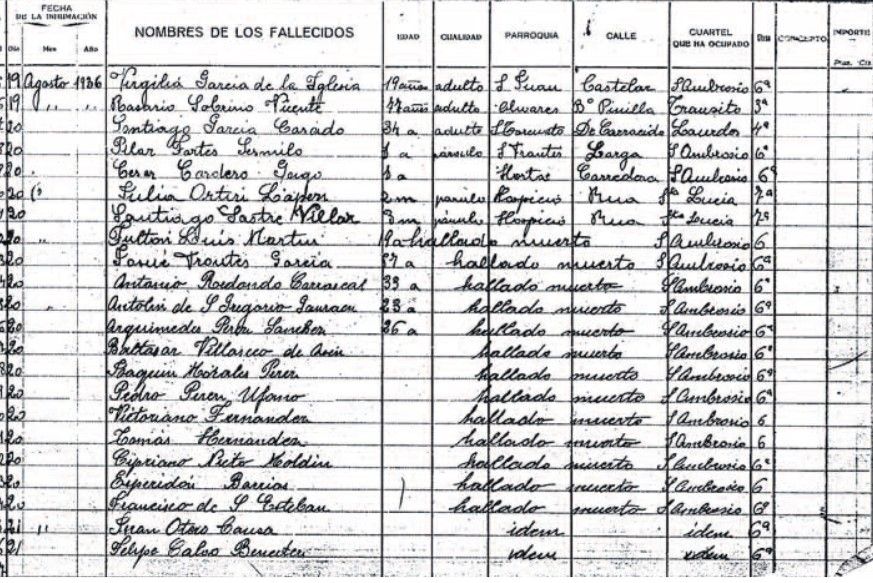 FECHA DE LA INHUMACIÓN NOMBRES DE LOS FALLECIDOS EDAD CUALIDAD PARROQUIA CALLE CUARTEL QUE HA OCUPADO CONCEPTO IMPORTE
Día Mes Año Ptas. Cts.
19 Agosto 1936 Virgilia Garcia de la Iglesia 19 años adulto S Juan Castelar S Ambrosio 6ª
19 " " Rosario Sobrino Vicente 77 años adulto Olivares Bº Pinilla Transito 3ª
20 Santiago Garcia Casado 34 a adulto S Torcuato De Carracido 4ª
20 Pilar Fortes párvulo Larga S Ambrosio 6ª
20 Cesar Cordero Gago Hortas Corredora S Ambrosio 6ª
20 Julia 2 m párvulo Hospicio Rua Sta Lucia 7ª
20 Santiago Sastre Villar 3 m párvulo Hospicio Rua Sta Lucia 7ª
20 " Luis Martin 19 a hallado muerto S Ambrosio 6
20 Garcia 57 a hallado muerto S Ambrosio 6ª
20 Antonio Redondo Carrascal 39 a hallado muerto S Ambrosio 6ª
20 " Antolin de S Gregorio 23 a hallado muerto S Ambrosio 6ª
20 Arquimedes Perez Sanchez 26 a hallado muerto S Ambrosio 6ª
20 Baltasar Villaseco de hallado muerto S Ambrosio 6ª
20 Joaquin Morales Perez hallado muerto S Ambrosio 6ª
20 Pedro Perez Ufano hallado muerto S Ambrosio 6ª
20 Victoriano Fernandez hallado muerto S Ambrosio 6
20 Tomas Hernandez hallado muerto S Ambrosio 6
20 Cipriano Nieto Roldin hallado muerto S Ambrosio 6ª
20 Esperidon Barrios hallado muerto S Ambrosio 6
20 Francisco de S Esteban hallado muerto S Ambrosio 6ª
21 " Juan Otero idem idem 6ª
21 Felipe Calvo idem idem 6ª